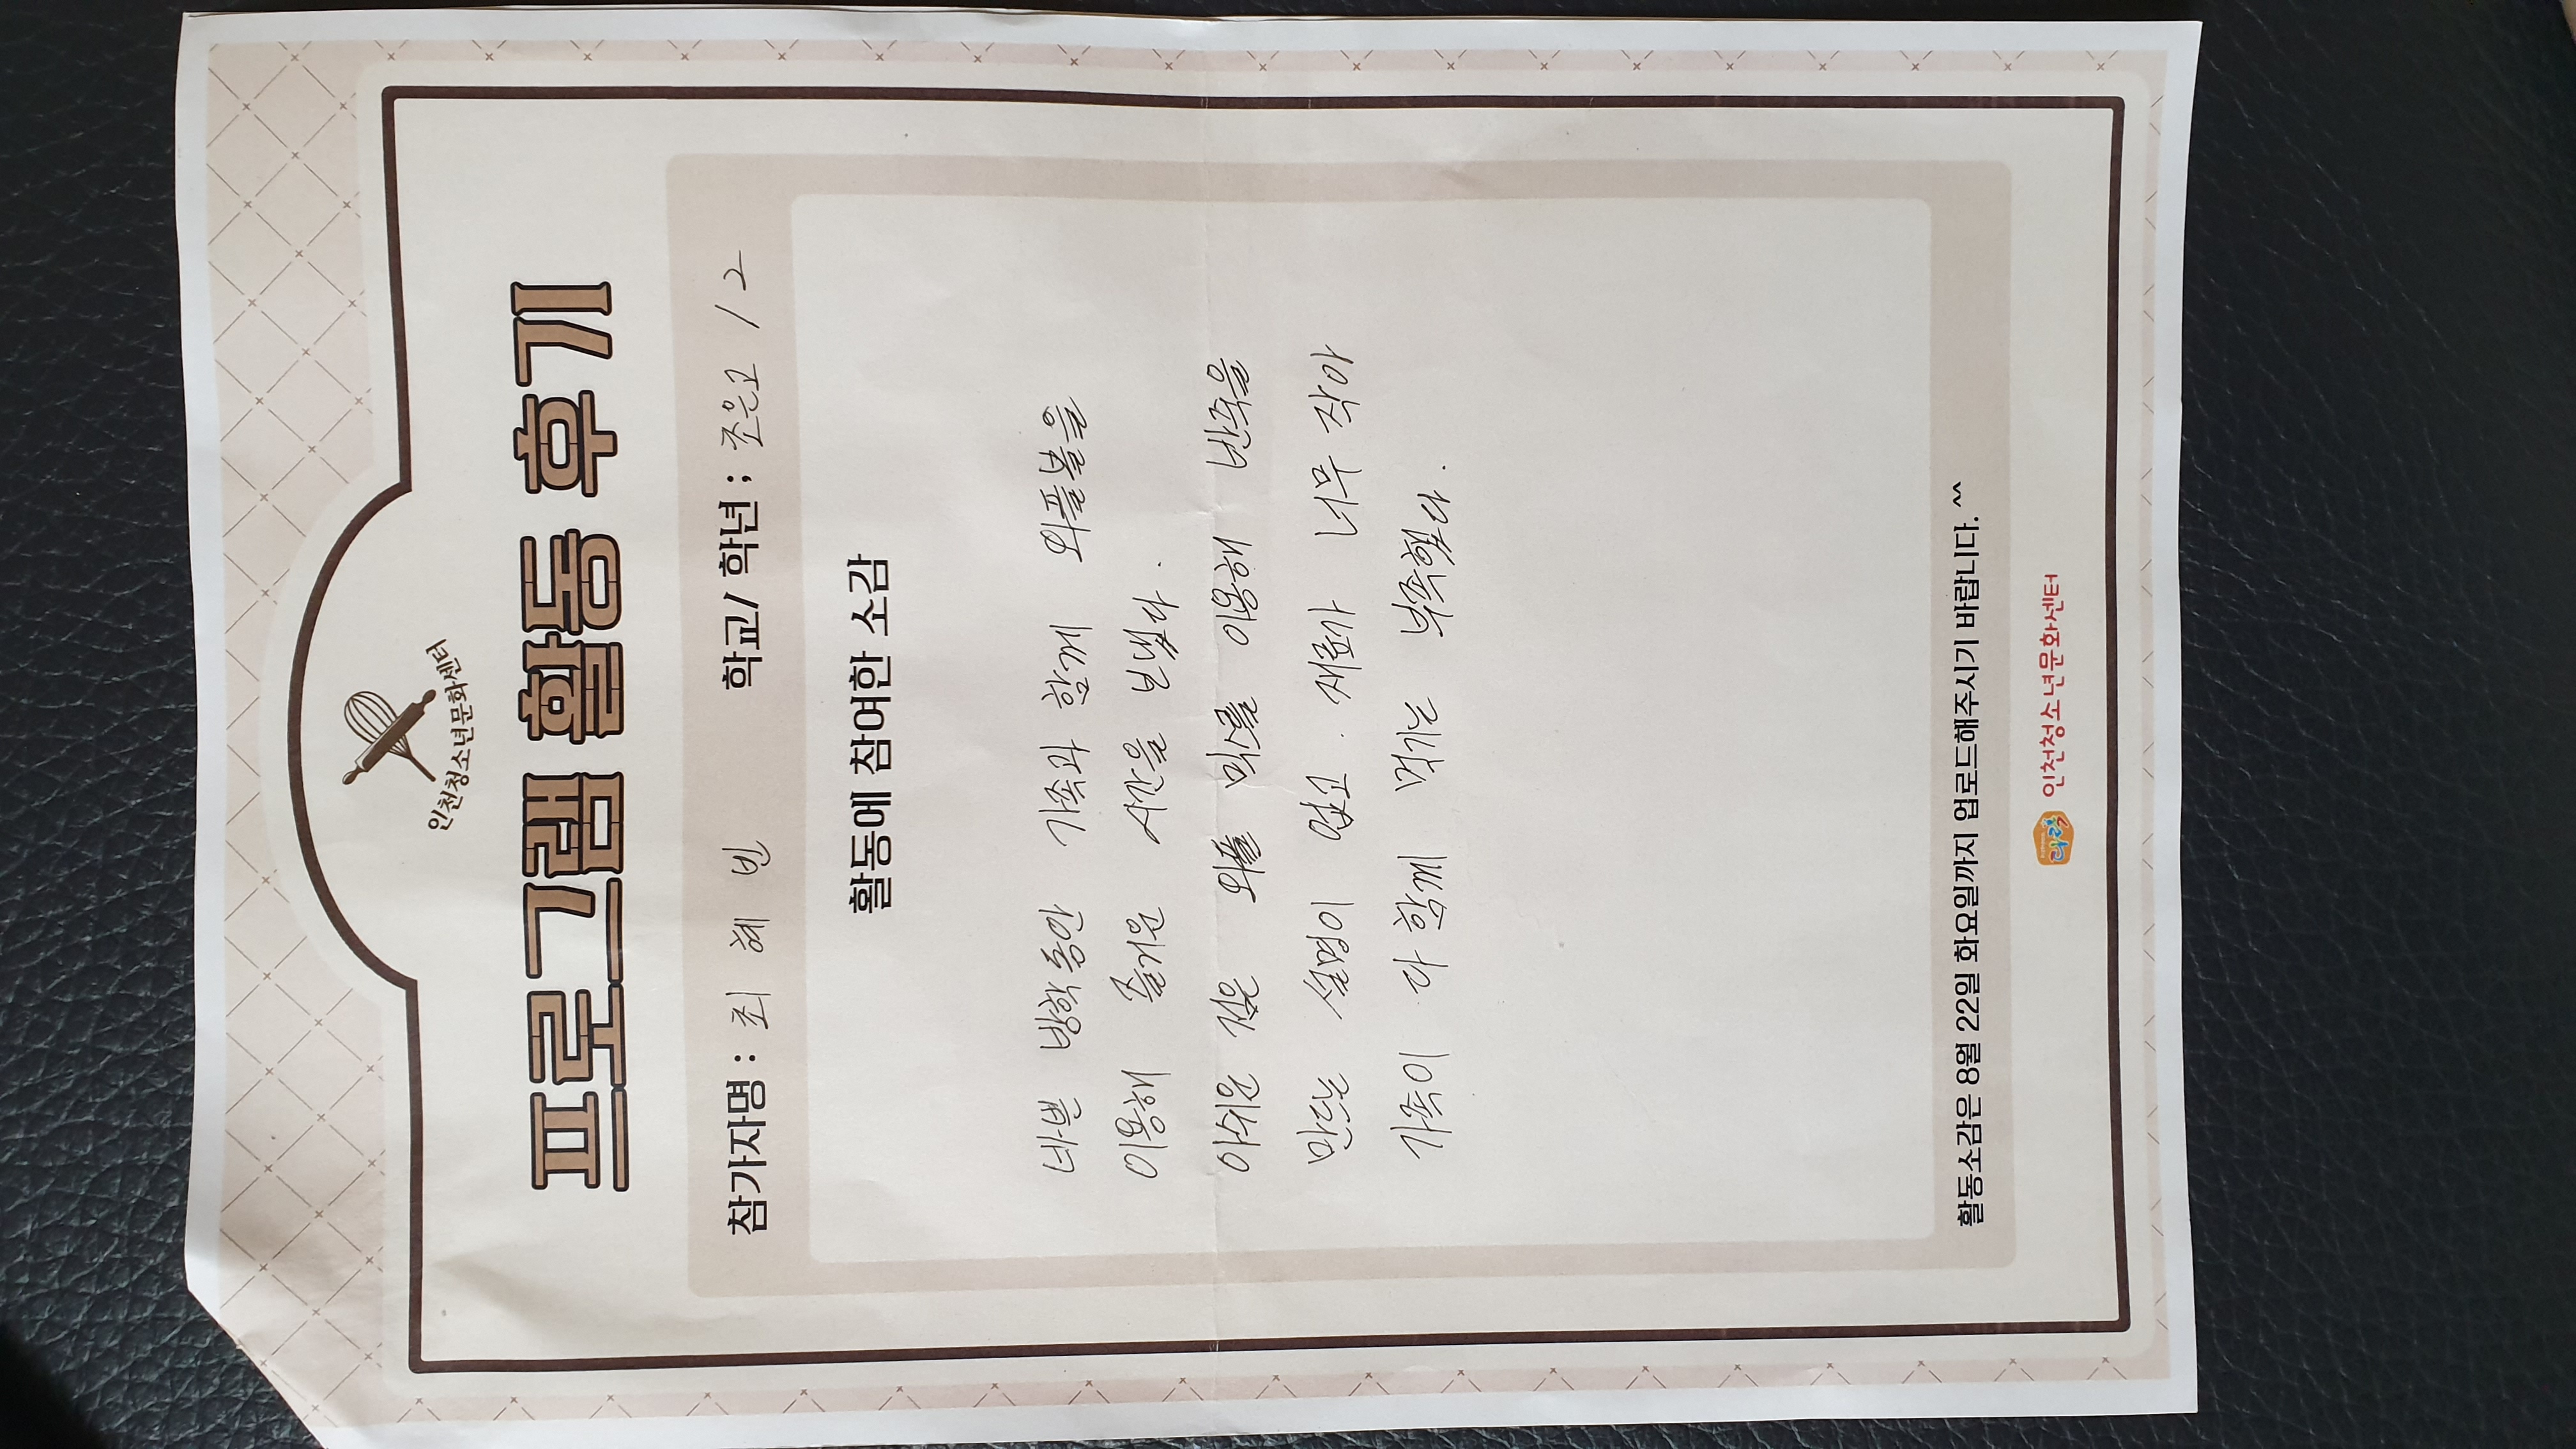 인천청소년문화센터
프로그램 활동 후기
참가자명 : 최 혜 빈 학교/ 학년 ; 조은고 / 2
활동에 참여한 소감
바쁜 방학동안 가족과 함께 와플볼을
이용해 즐거운 시간을 보냈다.
아쉬운 점은 와플 믹스를 이용해 반죽을
만다는 설명이 없고. 재료가 너무 작아
가족이 다 함께 먹기는 부족했다.
활동소감은 8월 22일 화요일까지 업로드해주시기 바랍니다. ^^
인천청소년문화센터